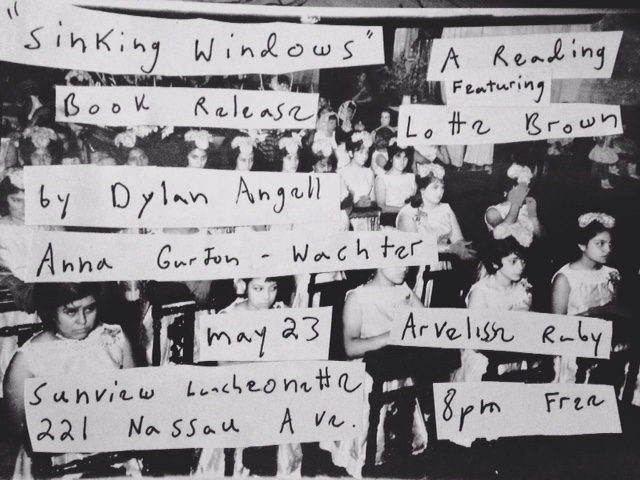 "Sinking Windows"
Book Release
by Dylan Angell
A Reading
Featuring
Lotte Brown
Anna Gurton-Wachter
May 23
Arvelisse Ruby
Sunview Luncheonette
221 Nassau Ave.
8pm Free